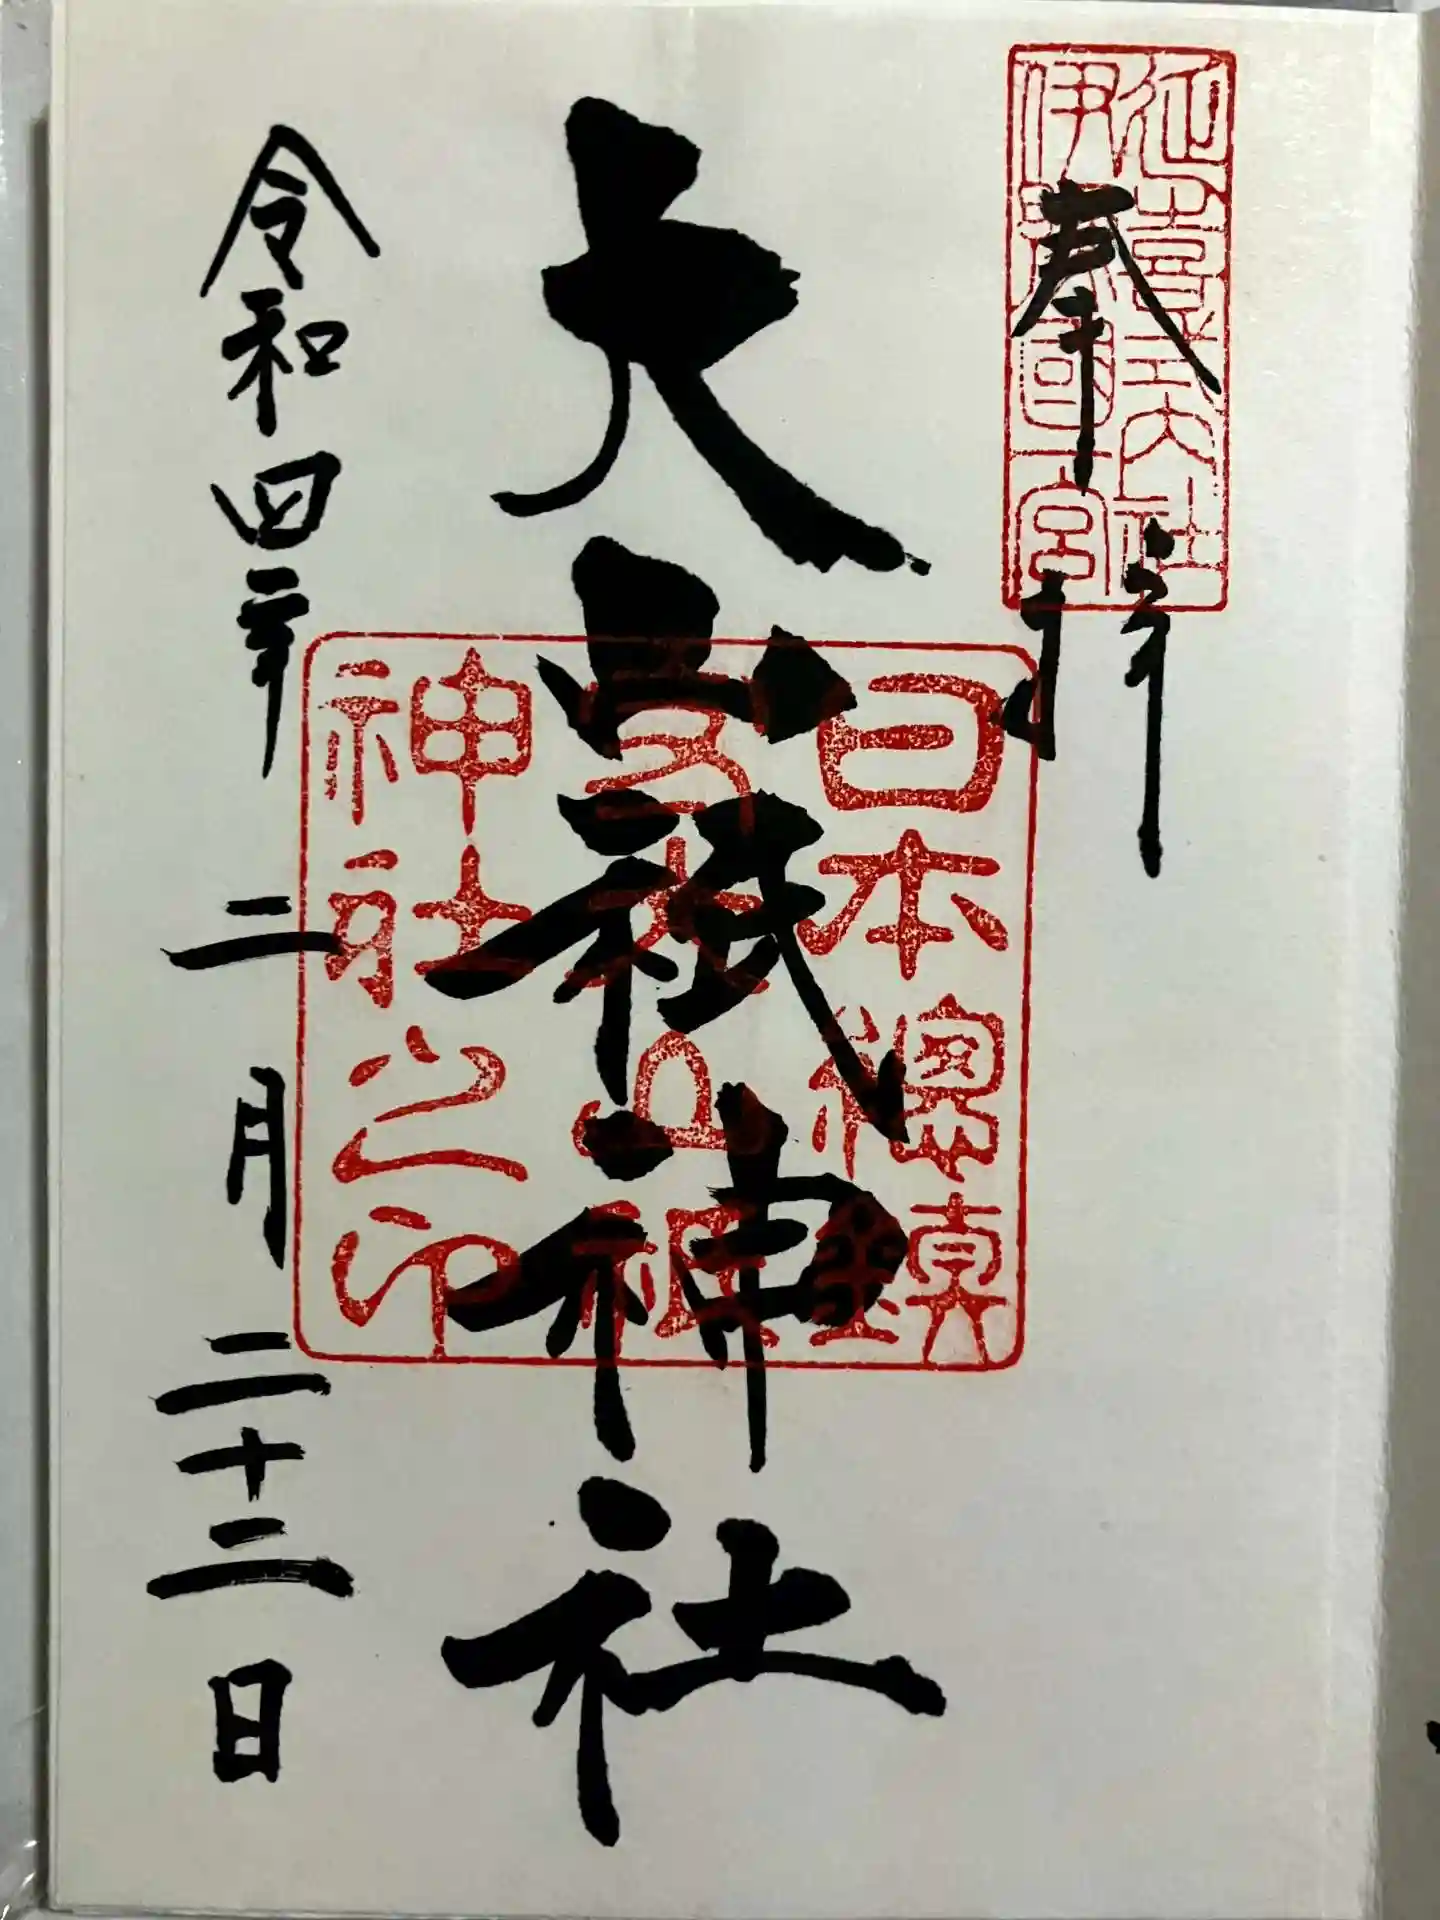 延喜式内社
伊豫國一宮
奉拝
大山祇神社
日本總鎮
守大山祇
神社之印
令和四年二月二十二日